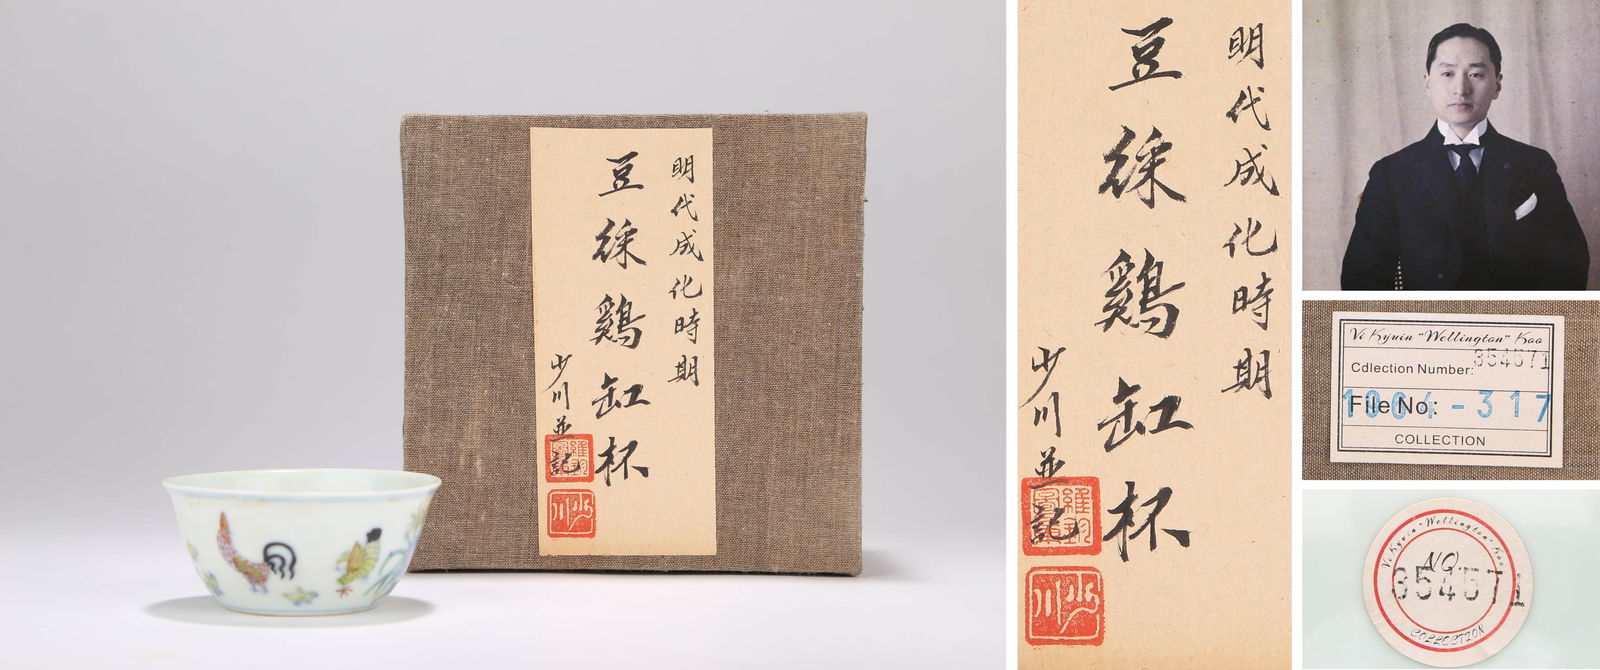 明代成化時期
豆綵鷄缸杯
少川並記
維鈞
少川
明代成化時期
豆綵鷄缸杯
少川並記
少川
Vi Kyuin "Wellington" Koo
Cdlection Number:
354571
File No:
1964-317
COLLECTION
Vi Kyuin "Wellington" Koo
NO.
354571
COLLECTION